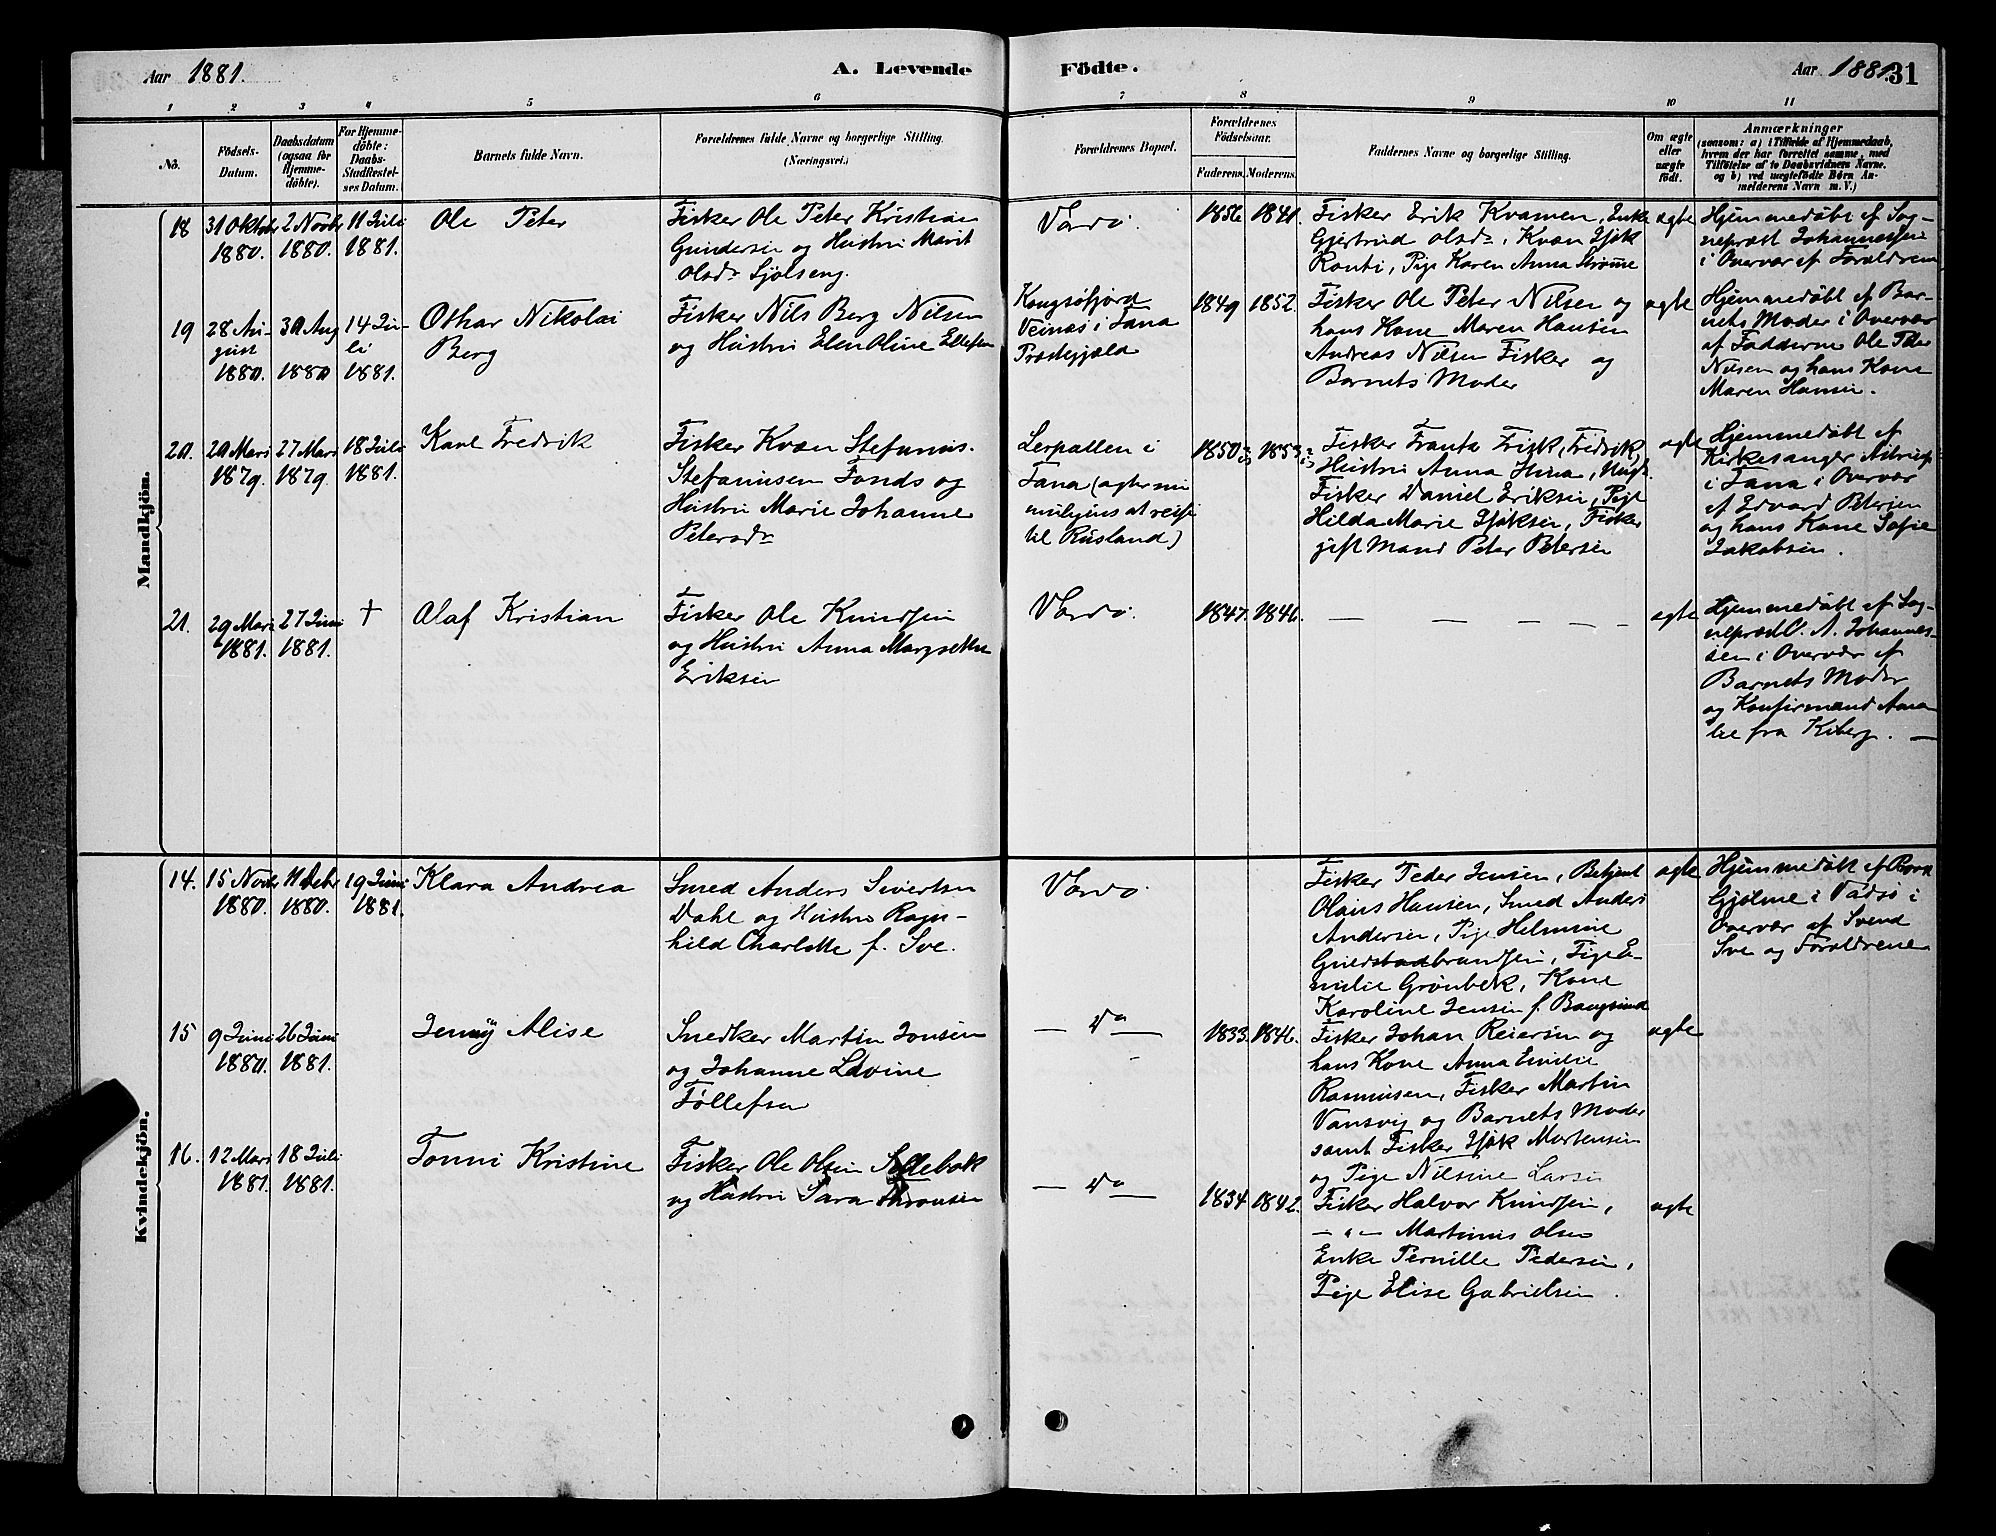 Aar 1881.
A. Levende
Födte.
Aar 1881.
31
1 2 3 4 5 6 7 8 9 10 11
No.
Födsels-
Datum.
Daabsdatum
(ogsaa for
Hjemme-
döbte).
For Hjemme-
döbte:
Daabs-
Stadfæstel-
ses Datum.
Barnets fulde Navn.
Forældrenes fulde Navne og borgerlige Stilling.
(Næringsvei.)
Forældrenes Bopæl.
Forældrenes
Födselsaar.
Faderens. Moderens.
Faddernes Navne og borgerlige Stilling.
Om ægte
eller
uægte
födt.
Anmærkninger
(saasom: a) i Tilfælde af Hjemmedaab,
hvem der har forrettet samme, med
Tilföielse af to Daabsvidners Navne,
og b) ved uægtefödte Börn An-
melderens Navn m. V.)
Mandkjön.
18
31 Oktbr
1880.
2 Novbr
1880.
11 Juli
1881.
Ole Peter
Fisker Ole Peter Kristian
Gundersen og Hustru Marit
Olsdr Sjølseng.
Vardø.
1856 1841.
Fisker Erik Kvamen, Enke
Gjertrud Olsdr, Kvæn Isak
Ronti, Pige Karen Anna Strømme
ægte
Hjemmedøbt af Sog-
neprest Johannessen
i Overvær af Forældrene
19
28 Au-
gust
1880.
30 Aug
1880
14 Ju-
li
1881.
Othar Nikolai
Berg
Fisker Nils Berg Nilsen
og Hustru Elen Oline Ellefsen
Kongsøfjord
Veines i Tana
Præstegjæld
1849 1852.
Fisker Ole Peter Nilsen og
hans Kone Maren Hansen
Andreas Nilsen Fisker og
Barnets Moder
ægte
Hjemmedøbt af Bar-
nets Moder i Overvær
af Fadderne Ole Peter
Nilsen og hans Kone
Maren Hansen.
20.
20 Mars
1879.
27 Mars
1879.
18 Juli
1881.
Karl Fredrik
Fisker Kvæn Stefanus
Stefanusen Fonds og
Hustru Marie Johanne
Petersdr
Lerpollen i
Tana (agter mu
muligens at reise
til Rusland)
1850 1853
Fisker Frantz Frisk, Fredrik,
Hustru Anna Hina, Ungk.
Fisker Daniel Eriksen, Pige
Hilda Marie Isaksen, Fisker
gift Mand Peter Petersen
ægte
Hjemmedøbt af
Kirkesanger Astrup
i Tana i Overvær
af Edvard Petersen
og hans Kone Sofie
Jakobsen.
21.
29 Mars
1881.
27 Juni
1881.
†
Olaf Kristian
Fisker Ole Knudsen
og Hustru Anna Margrethe
Eriksen
Vardø.
1847. 1846.
— — — — —
ægte
Hjemmedøbt af Sog-
neprest O. A. Johannes-
sen i Overvær af
Barnets Moder
og Konfirmand Ama-
lie fra Kiberg. —
Kvindekjön.
14.
15 Novbr
1880.
11 Debr
1880.
19 Juni
1881.
Klara Andrea
Smed Anders Sivertsen
Dahl og Hustru Ragn-
hild Charlotte f. Sve.
Vardø.
Fisker Peder Jensen, Betjent
Olaus Hansen, Smed Anders
Andersen, Pige Helmine
Guldbrandsen, Pige E-
milie Grønbek, Kone
Karoline Jensen f. Bangsund
ægte
Hjemmedøbt af Barn
Gjølme i Vadsø i
Overvær af Svend
Sve og Forældrene
15
9 Juni
1880.
26 Juni
1881.
Jenny Alise
Snedker Martin Jonsen
og Johanne Lovine
Tollefsen
— Do —
1833. 1846.
Fisker Johan Reiersen og
hans Kone Anna Emilie
Rasmusen, Fisker Martin
Vansvig og Barnets Moder
samt Fisker Isak Mortensen
og Pige Nilsine Larsen
ægte
16.
12 Mars
1881.
18 Juli
1881.
Tonni Kristine
Fisker Ole Olsen Sellebak
og Hustru Sara Thronsen
— Do —
1834 1842.
Fisker Halvor Knudsen,
— " — Martinus Olsen
Enke Pernille Pedersen,
Pige Elise Gabrielsen.
ægte